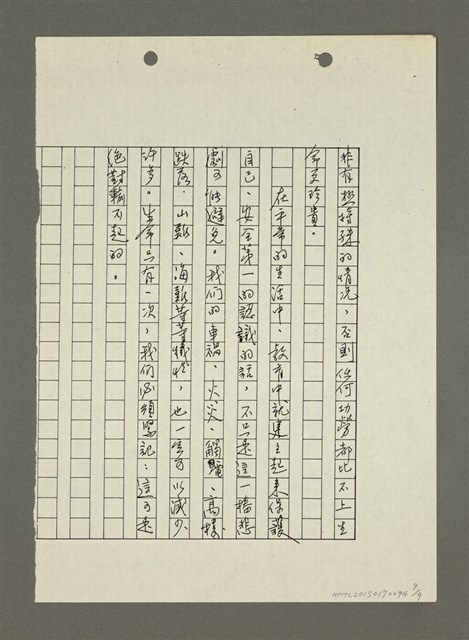 非有極特殊的情況，否則任何功勞都比不上生
命更珍貴。
在平常的生活中、教育中就建立起來保護
自己、安全第一的認識的話，不只是這一樁悲
劇可以避免。我們的車禍、火災、觸電、高樓
跌落、山難、海難等等犧牲，也一定可以減少
許多。生命只有一次，我們必須緊記：這可是
絕對輸不起的。
NMTL20150170094 9/9